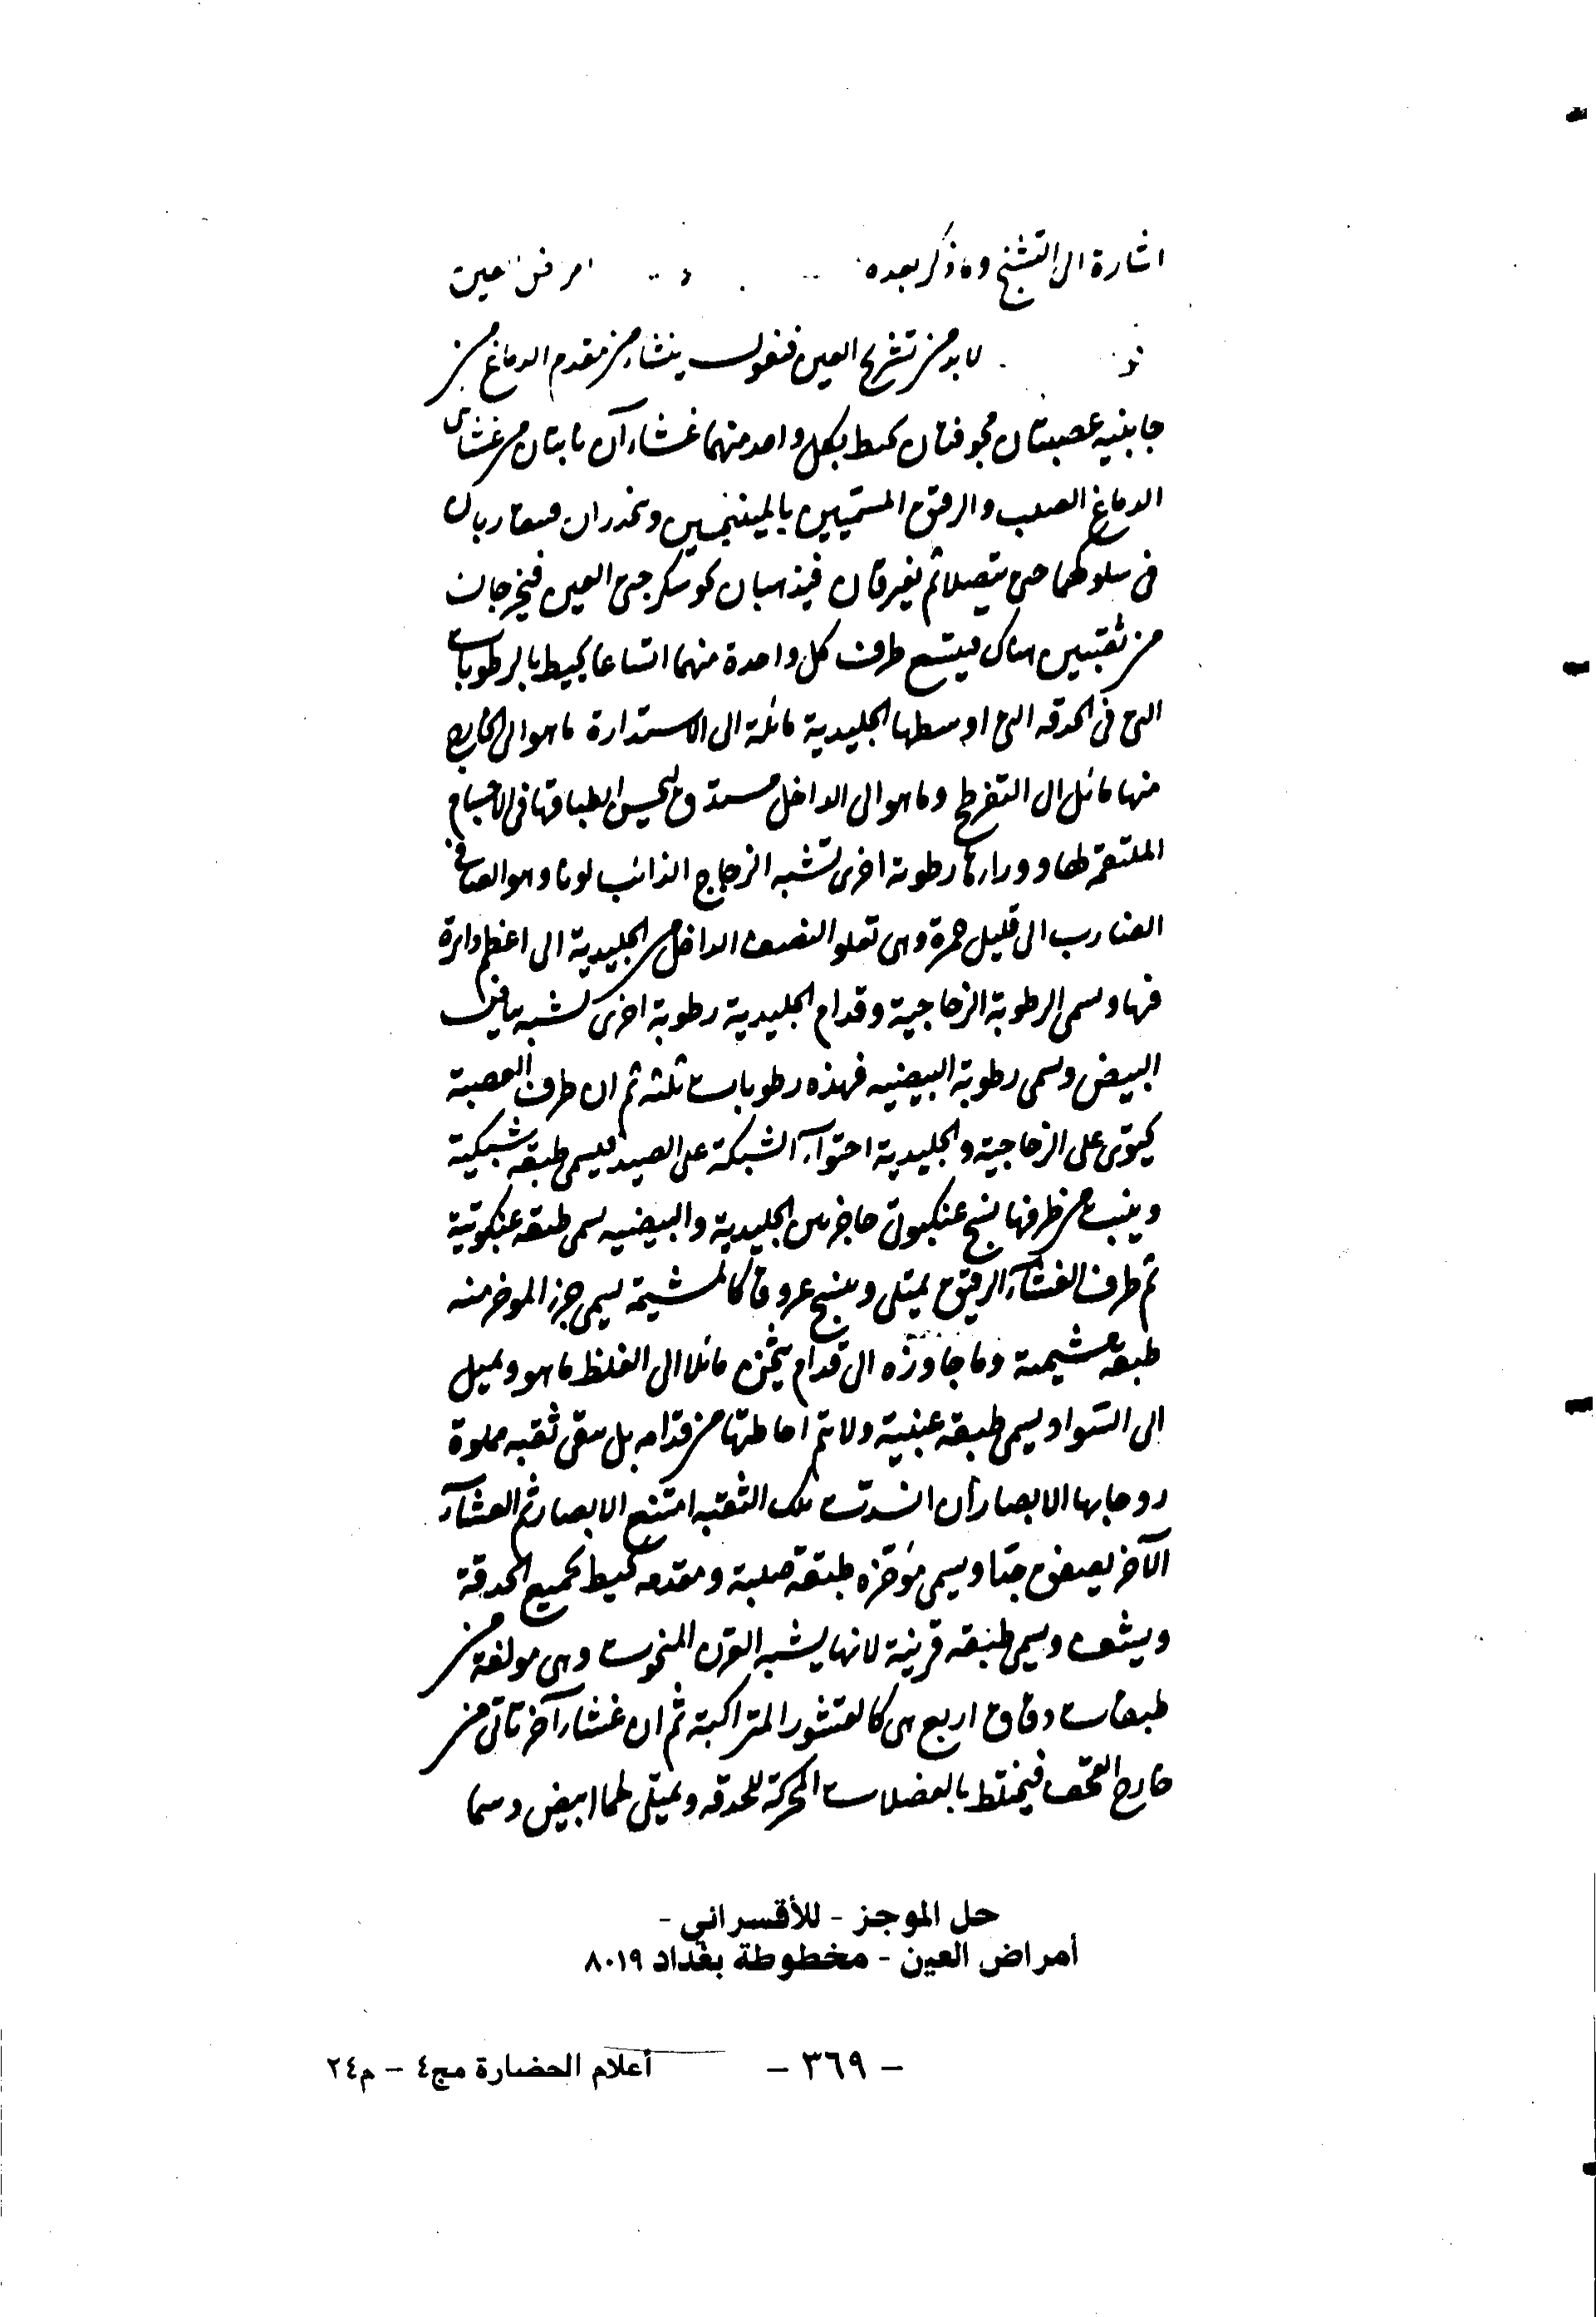 اشارة الى التشنج وما ذكر بعده
لا بد من تشريح العين فنقول ينشاء من مقدم الدماغ من
جانبيه عصبتان مجوفتان يحيط بكل واحد منهما غشاءآن نابتان من غشائى
الدماغ الصلب والرقيق المسميين بالمينينجيين وتخدران فيتقاربان
فى سلوكهما حتى يتصلا ثم يفرقان فيذهبان نحو سكرجتى العين فيخرجان
من ثقبتين هناك فيتسع طرف كل واحدة منهما اتساعا يحيط بالرطوبات
التى فى الحدقه التى اوسطها الجليدية مائلة الى الاستدارة ما هو الى الخارج
منها مائل الى التفرطح وما هو الى الداخل مستدق ليحسن انطباقها فى الاجسام
الملتقمة لها و وراءها رطوبة اخرى تشبه الزجاج الذائب لونا وهو الصافى
الضارب الى قليل حمرة وهى تعلو النصف الداخل من الجليدية الى اعظم دائرة
فيها ويسمى الرطوبة الزجاجية وقدام الجليدية رطوبة اخرى تشبه بياض
البيض ويسمى رطوبة البيضيه فهذه رطوبات ثلثه ثم ان طرف العصبة
يحتوى على الزجاجية والجليدية احتوآء الشبكة على الصيد فيسمى طبقه شبكية
وينبت من طرفها نسج عنكبوتى حاجز بين الجليدية والبيضيه يسمى طبقه عنكبوتية
ثم طرف الغشآء الرقيق يمتلى وينسج عروقا كالمشيمة يسمى جزء الموخر منه
طبقه مشيمية وما جاوزه الى قدام يثخن مائلا الى الغلظ ما هو ويميل
الى السواد ويسمى طبقه عنبية ولا تتم احاطتها من قدامه بل يبقى ثقبه مملوة
روحا بها الابصار ان انسدت تلك الثقبه امتنع الابصار ثم الغشآء
الآخر يصفق جدا ويسمى مؤخره طبقة صلبة ومقدمه يحيط بجميع الحدقة
ويشف ويسمى طبقه قرنية لانها يشبه القرن المنحوت وهى مولفة من
طبقات دقاق اربع هى كالقشور المتراكبة ثم ان غشاء آخر تاتى من
خارج القحف فيختلط بالعضلات المحركة للحدقه ويمتلى لحما ابيض دسما
حل الموجز - للأقسراني -
أمراض العين - مخطوطة بغداد ٨٠١٩
- ٣٦٩ -
أعلام الحضارة مج٤ - م٢٤